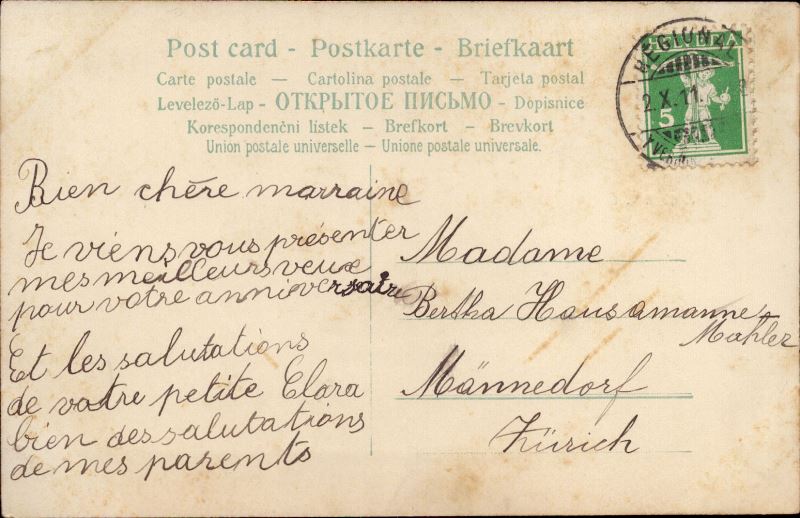 Post card - Postkarte - Briefkaart
Carte postale — Cartolina postale — Tarjeta postal
Levelező-Lap - ОТКРЫТОЕ ПИСЬМО - Dopisnice
Korespondenčni listek — Brefkort — Brevkort
Union postale universelle — Unione postale universale.
REGIONAL
2.X.11.
5
Bien chère marraine
Je viens vous présenter
mes meilleurs veux
pour votre anniversaire
Et les salutations
de votre petite Clara
bien des salutations
de mes parents
Madame
Bertha Hausamanne,
Mahler
Männedorf
Zürich